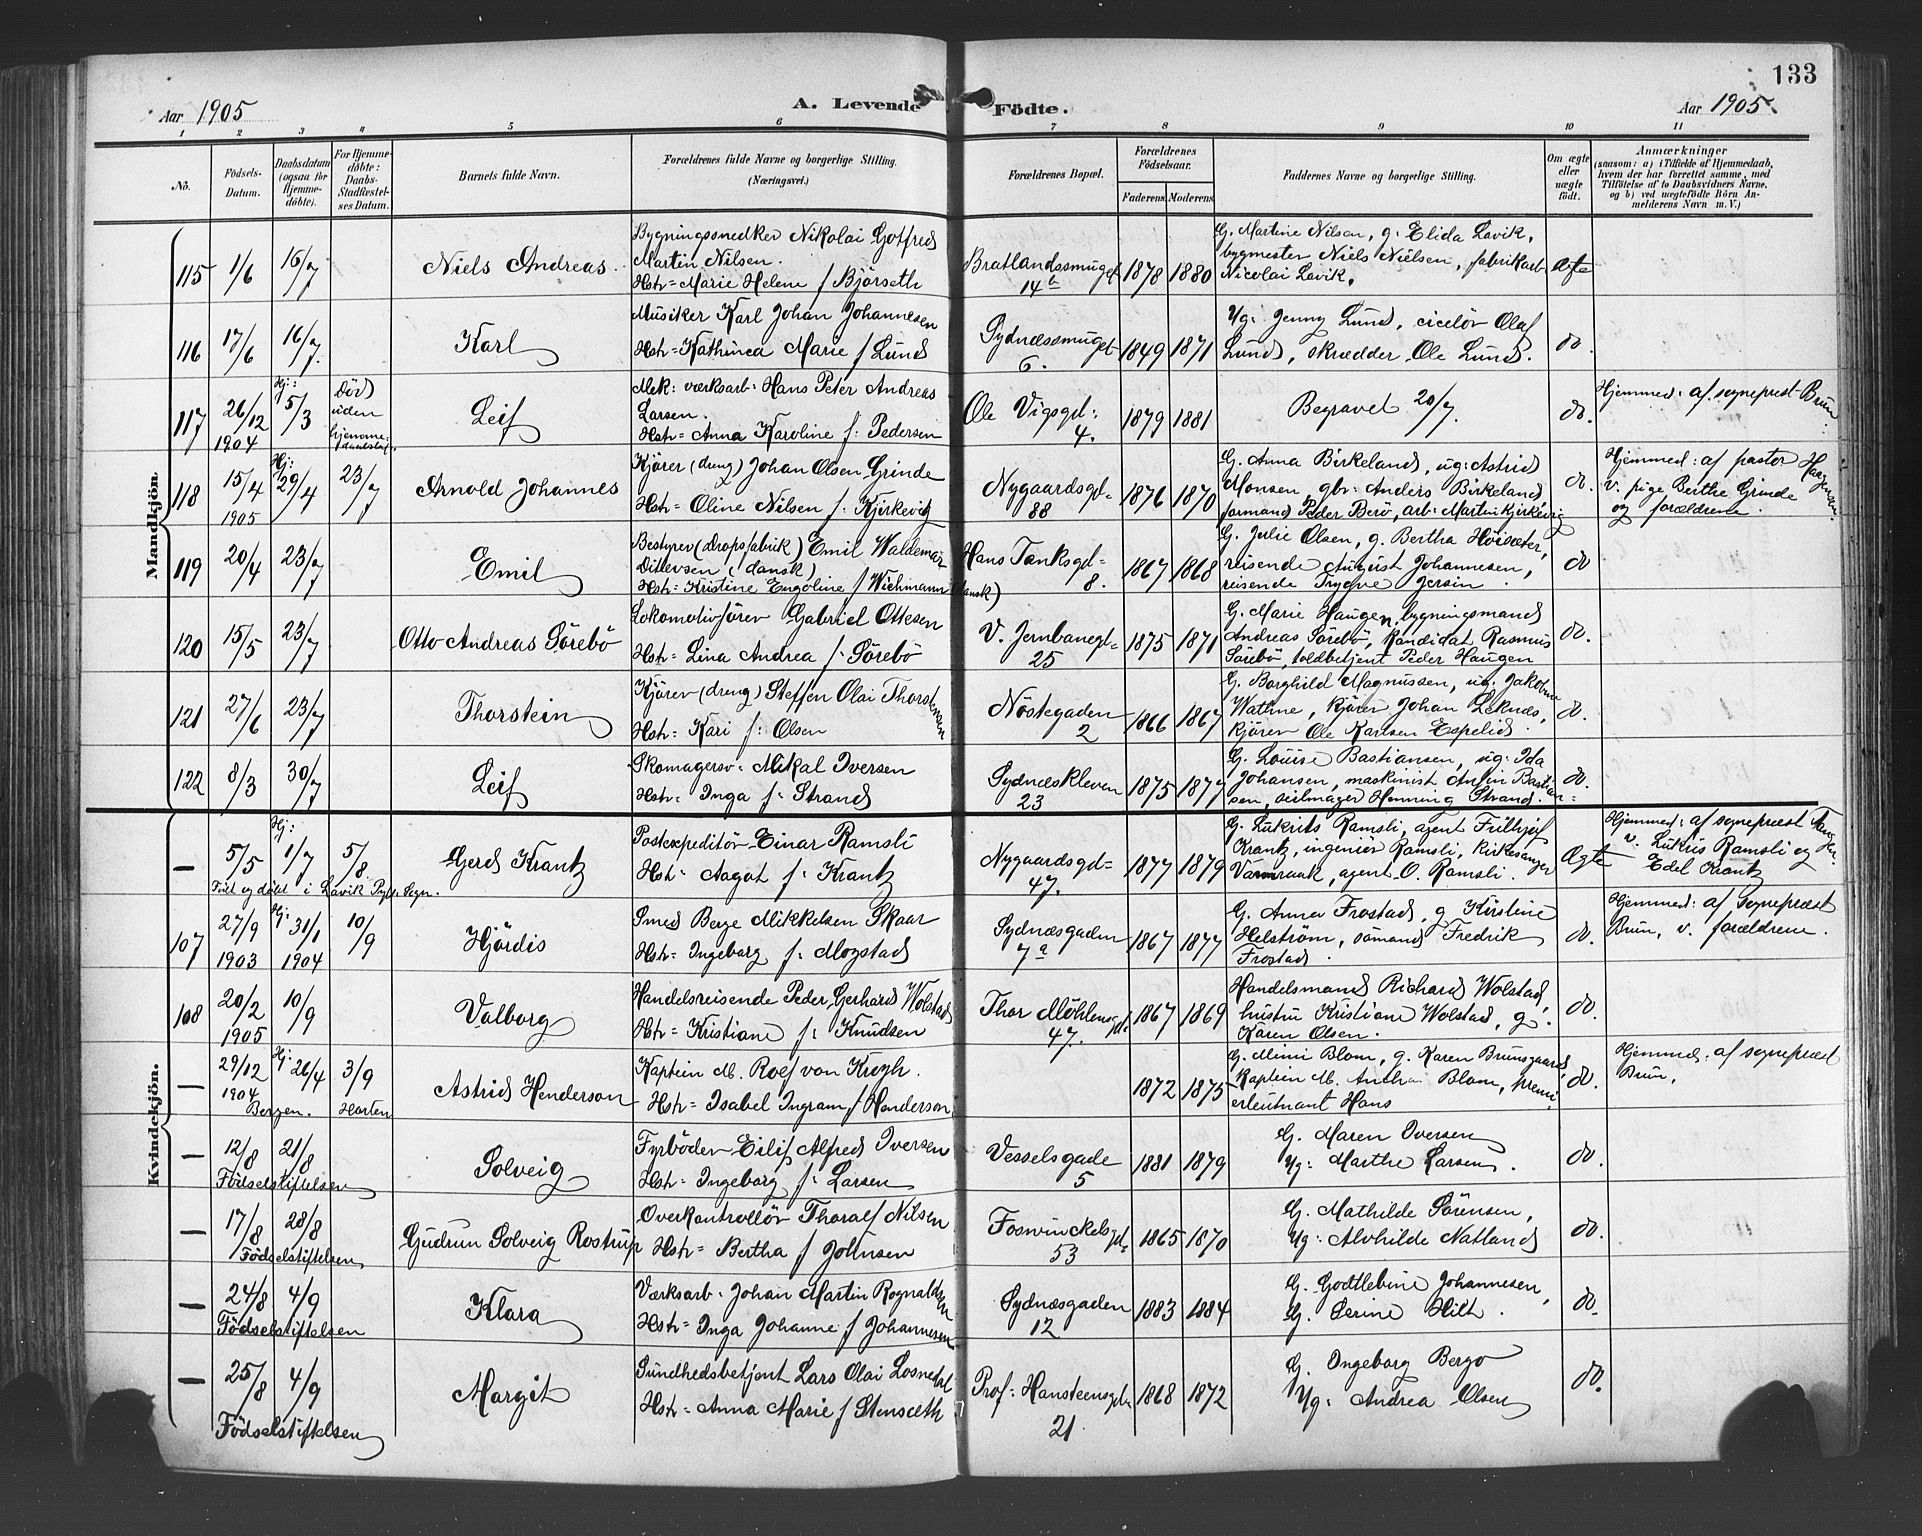 133
Aar 1905
A. Levende Födte.
Aar 1905
1 2 3 4 5 6 7 8 9 10 11
No.
Födsels-Datum.
Daabsdatum (ogsaa for Hjemmedöbte).
For Hjemmedöbte: Daabs-Stadfæstelses Datum.
Barnets fulde Navn.
Forældrenes fulde Navne og borgerlige Stilling. (Næringsvei.)
Forældrenes Bopæl.
Forældrenes Födselsaar.
Faderens Moderens
Faddernes Navne og borgerlige Stilling.
Om ægte eller uægte födt.
Anmærkninger
(saasom: a) i Tilfælde af Hjemmedaab, hvem der har forrettet samme, med Tilföielse af to Daabsvidners Navne, og b) ved uægtefödte Börn Anmelderens Navn m. V.)
Mandkjön.
115 1/6 16/7 Niels Andreas.
Bygningssnedker Nikolai Gotfred
Martin Nilsen.
Hstr= Marie Helene f Björseth
Bratlandssmuget 14b 1878 1880
G. Martine Nilsen, g: Elida Lavik,
bygmester Niels Nielsen, fabrikarb
Nicolai Lavik.
Ægte
116 17/6 16/7 Karl
Musiker Karl Johan Johannesen
Hstr= Kathinca Marie f Lund
Sydnæssmuget 6. 1849 1871
Ug: Jenny Lund, ciselör Olaf
Lund, skrædder Ole Lund.
do.
117 26/12 1904 Hj: 5/3 Död uden Hjemme=
Leif
Mek: værksarb: Hans Peter Andreas
Larsen.
Hstr= Anna Karoline f: Pedersen
Ole Vigsgd: 4. 1879 1881
Begravet 20/7.
do.
Hjemmed: af sognepræst Brun.
118 15/4 1905 Hj: 29/4 23/7 Arnold Johannes
Kjörer (dreng) Johan Olsen Grinde
Hstr= Oline Nilsen f: Kjirkevig
Nygaardsgd= 88 1876 1870
G. Anna Birkeland, ug: Astrid
Monsen, gbr: Anders Birkeland,
formand Peder Berö, arb: Martin Kjirkevig
do.
Hjemmed: af pastor Haagensen.
v. pige Berthe Grinde
og forældrene.
119 20/4 23/7 Emil
Bestyrer (dropsfabrik) Emil Waldemar
Ditlevsen (dansk)
Hstr= Kristine Engoline f Wichmann (dansk)
Hans Tanksgd= 8. 1867 1868
G. Julie Olsen, g. Bertha Höisæter,
reisende August Johannesen,
reisende Trygve Jersin.
do
120 15/5 23/7 Otto Andreas Sörebö
Lokomotivförer Gabriel Ottesen
Hstr= Lina Andrea f: Sörebö
V. Jernbanegt= 25 1875 1871
G. Marie Haugen, bygningsmand
Andreas Sörebö, kandidat Rasmus
Sörebö, toldbetjent Peder Haugen
do.
121 27/6 23/7 Thorstein
Kjörer (dreng) Steffen Olai Thorstensen
Hstr= Kari f: Olsen
Nöstegaden 2 1866 1867
G. Borghild Magnussen, ug. Jakobine
Wathne, kjörer Johan Leknæs,
kjörer Ole Karlsen Espelid.
do.
122 8/3 30/7 Leif
Skomagersv: Mikal Iversen
Hstr= Inga f: Strand
Sydnæskleven 23 1875 1877
G. Louise Bastiansen, ug: Ida
Johansen, maskinist Anfin Bastian=
sen, seilmager Henning Strand.
do.
Kvindekjön.
— 5/5 Hj: 1/7 5/8 Gerd Krantz
Födt og döbt i Lavik
Postexpeditör Einar Ramsli
Hstr= Aagot f: Krantz
Nygaardsgd= 47. 1877 1879
G. Lukrits Ramsli, agent Frithjof
Krantz, ingeniör Ramsli, kirkesanger
agent O. Ramsli.
Ægte
Hjemmed: af sognepræst
v. Lukris Ramsli og
Edel Krantz
107 27/9 1903 Hj: 31/1 1904 10/9 Hjördis
Smed Berge Mikkelsen Skaar
Hstr= Ingeborg f: Mogstad
Sydnæsgaden 7a 1867 1877
G. Anna Frostad, g Kirstine
Helström, sömand Fredrik
Frostad.
do.
Hjemmed: af Sognepræst
Brun, v. forældrene.
108 20/2 1905 10/9 Valborg
Handelsreisende Peder Gerhard Wolstad
Hstr= Kristiane f: Knudsen
Thor Möhlensgd: 47. 1867 1869
Handelsmand Richard Wolstad,
hustru Kristiane Wolstad, g.
Karen Olsen.
do.
— 29/12 1904 Bergen. Hj: 26/4 3/9 Horten Astrid Henderson
Kaptein M. Roef von Krogh.
Hstr= Isabel Ingram f Henderson
1872 1875
G. Mimi Blom, g. Karen Brunsgaard,
Kaptein M. Blom, premi=
erleutnant Hans
do.
Hjemmed: af sognepræst
Brun,
— 12/8 21/8 Födselstiftelsen Solveig
Fyrböder Eilif Alfred Iversen
Hstr= Ingeborg f: Larsen
Vesselsgade 5 1881 1879
G. Maren Iversen
Ug: Marthe Larsen.
do.
— 17/8 28/8 Födselstiftelsen Gudrun Solveig Rostrup
Overkontrollör Thoralf Nilsen
Hstr= Bertha f Johnsen
Foswinckelsgd= 53 1865 1870
G. Mathilde Sörensen,
Ug: Alvhilde Natland
do.
— 24/8 4/9 Födselstiftelsen Klara
Værksarb: Johan Martin Rognaldsen
Hstr= Inga Johanne f Johannesen
Sydnæsgaden 12 1883 1884
G. Godtlebine Johannesen,
G. Serine Hilt.
do.
— 25/8 4/9 Födselstiftelsen Margit
Sundhedsbetjent Lars Olai Losnedal
Hstr= Anna Marie f Stensæth
Prof: Hansteensgd= 21 1868 1872
G. Ingeborg Bergo
Ug: Andrea Olsen
do.